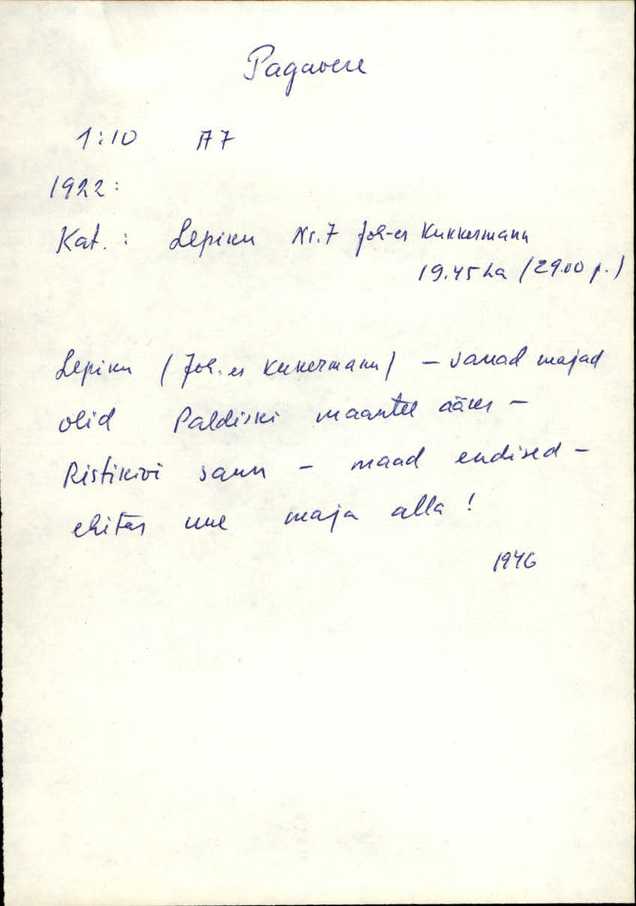 Pagavere
1:10 A7
1922:
Kat.: Lepiku Nr.7 Joh-es Kukkermann
19.45 ha (29.00 p.)
Lepiku (Joh. es Kukermann) - vanad majad
olid Paldiski maantee ääres -
Ristikivi saun - maad endised -
ehitas uue maja alla!
1946